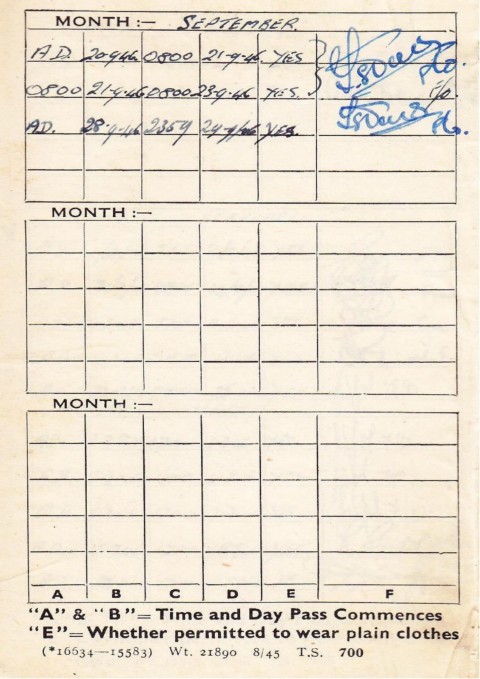 MONTH :— SEPTEMBER.
A.D. 20-9-46 0800 21-9-46 YES
0800 21-9-46 0800 23-9-46 YES. F/o.
AD. 28-9-46 2359 29-9-46 YES.
MONTH :—
MONTH :—
A B C D E F
"A" & "B" = Time and Day Pass Commences
"E" = Whether permitted to wear plain clothes
(*16634—15583) Wt. 21890 8/45 T.S. 700